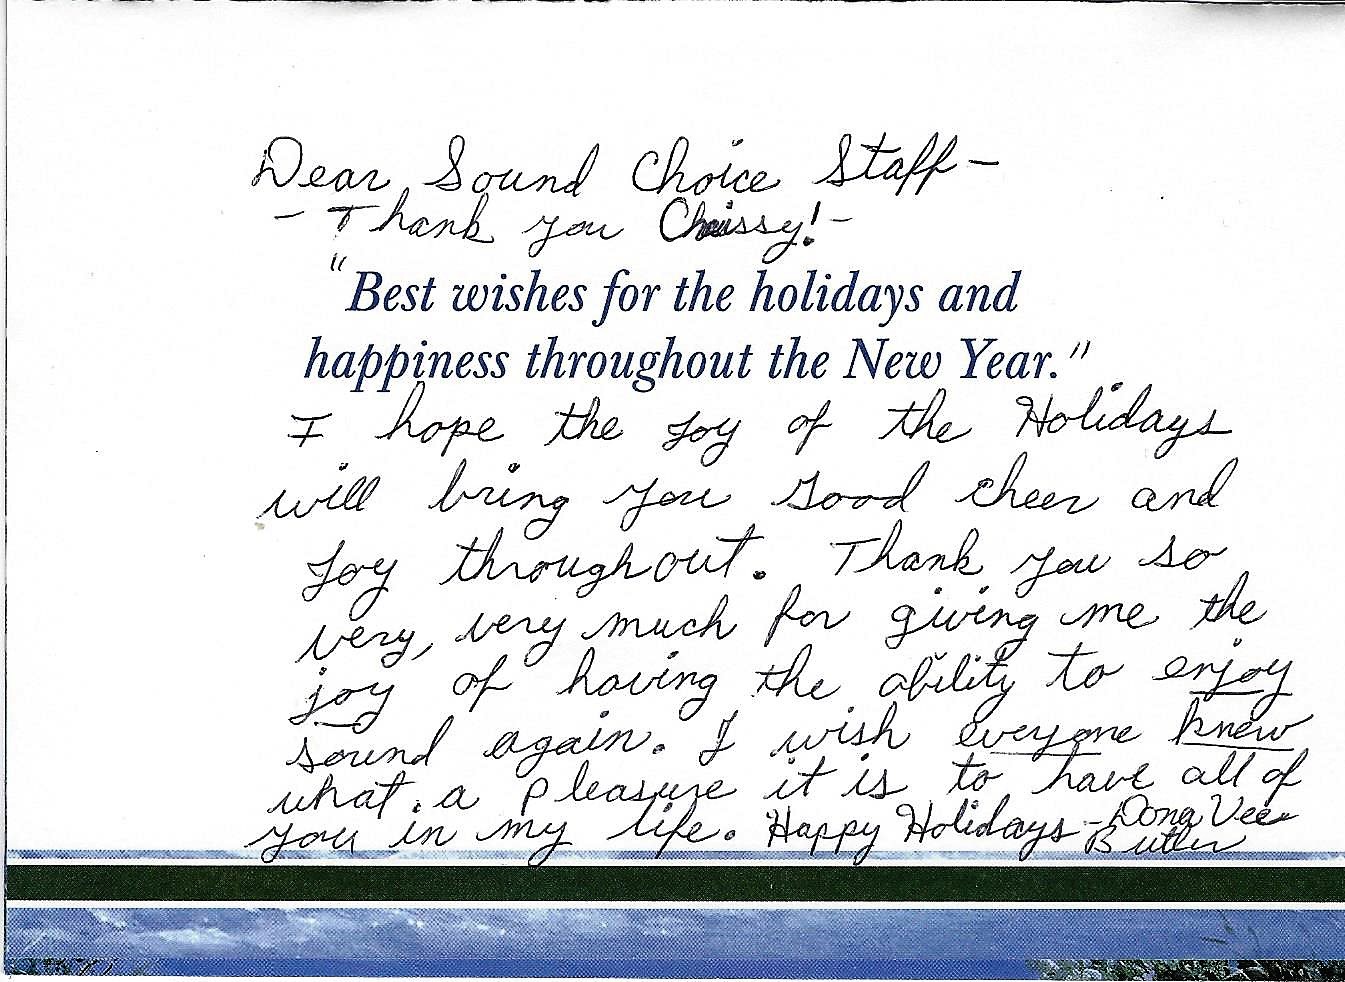 Dear Sound Choice Staff –
– Thank you Chrissy! –
"Best wishes for the holidays and
happiness throughout the New Year."
I hope the joy of the Holidays
will bring you good cheer and
joy throughout. Thank you so
very, very much for giving me the
joy of having the ability to enjoy
sound again. I wish everyone knew
what a pleasure it is to have all of
you in my life. Happy Holidays – Dona Vee
Butler